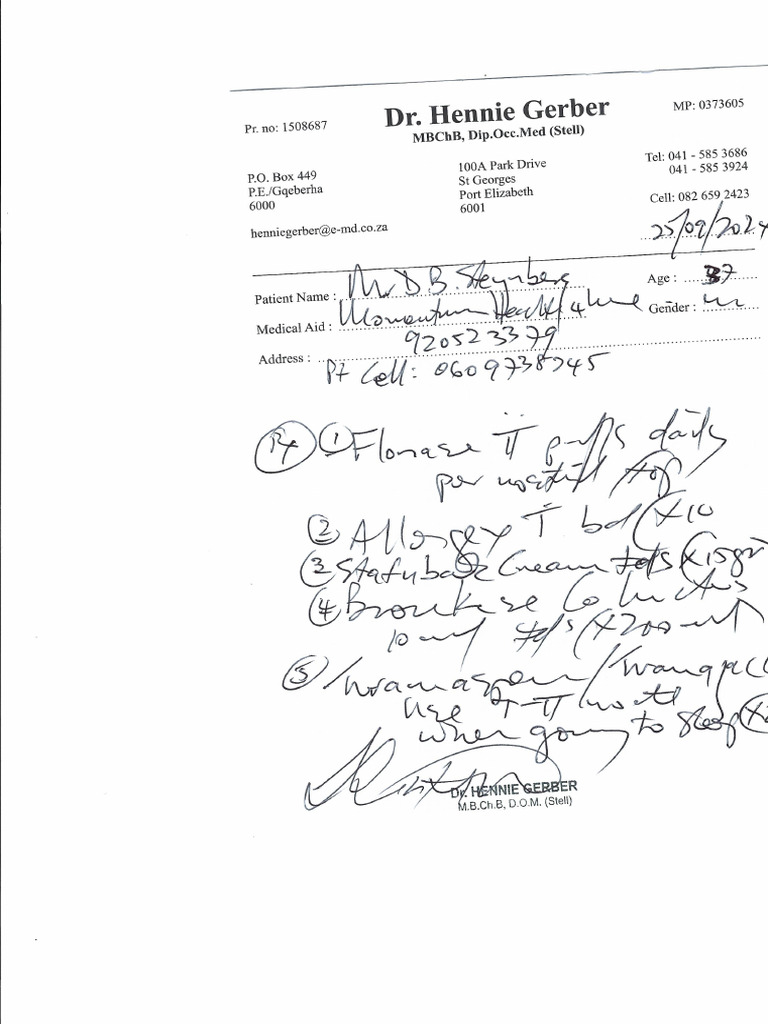 Dr. Hennie Gerber
MBChB, Dip.Occ.Med (Stell)
Pr. no: 1508687
MP: 0373605
P.O. Box 449
P.E./Gqeberha
6000
henniegerber@e-md.co.za
100A Park Drive
St Georges
Port Elizabeth
6001
Tel: 041 - 585 3686
041 - 585 3924
Cell: 082 659 2423
25/09/2024
Patient Name : Mr D.B. Steynberg
Age : 37
Medical Aid : Momentum Health4me
Gender : m
920523379
Address :
Pt Cell: 0609738745
Rx ① Flonase II puffs daily
per nostril
② Allergex T bd (X10
③ Cream tds X15gr
④ Co
10 ml tds (X200 ml
⑤
use T-II
when going to sleep
Dr. HENNIE GERBER
M.B.Ch.B, D.O.M. (Stell)